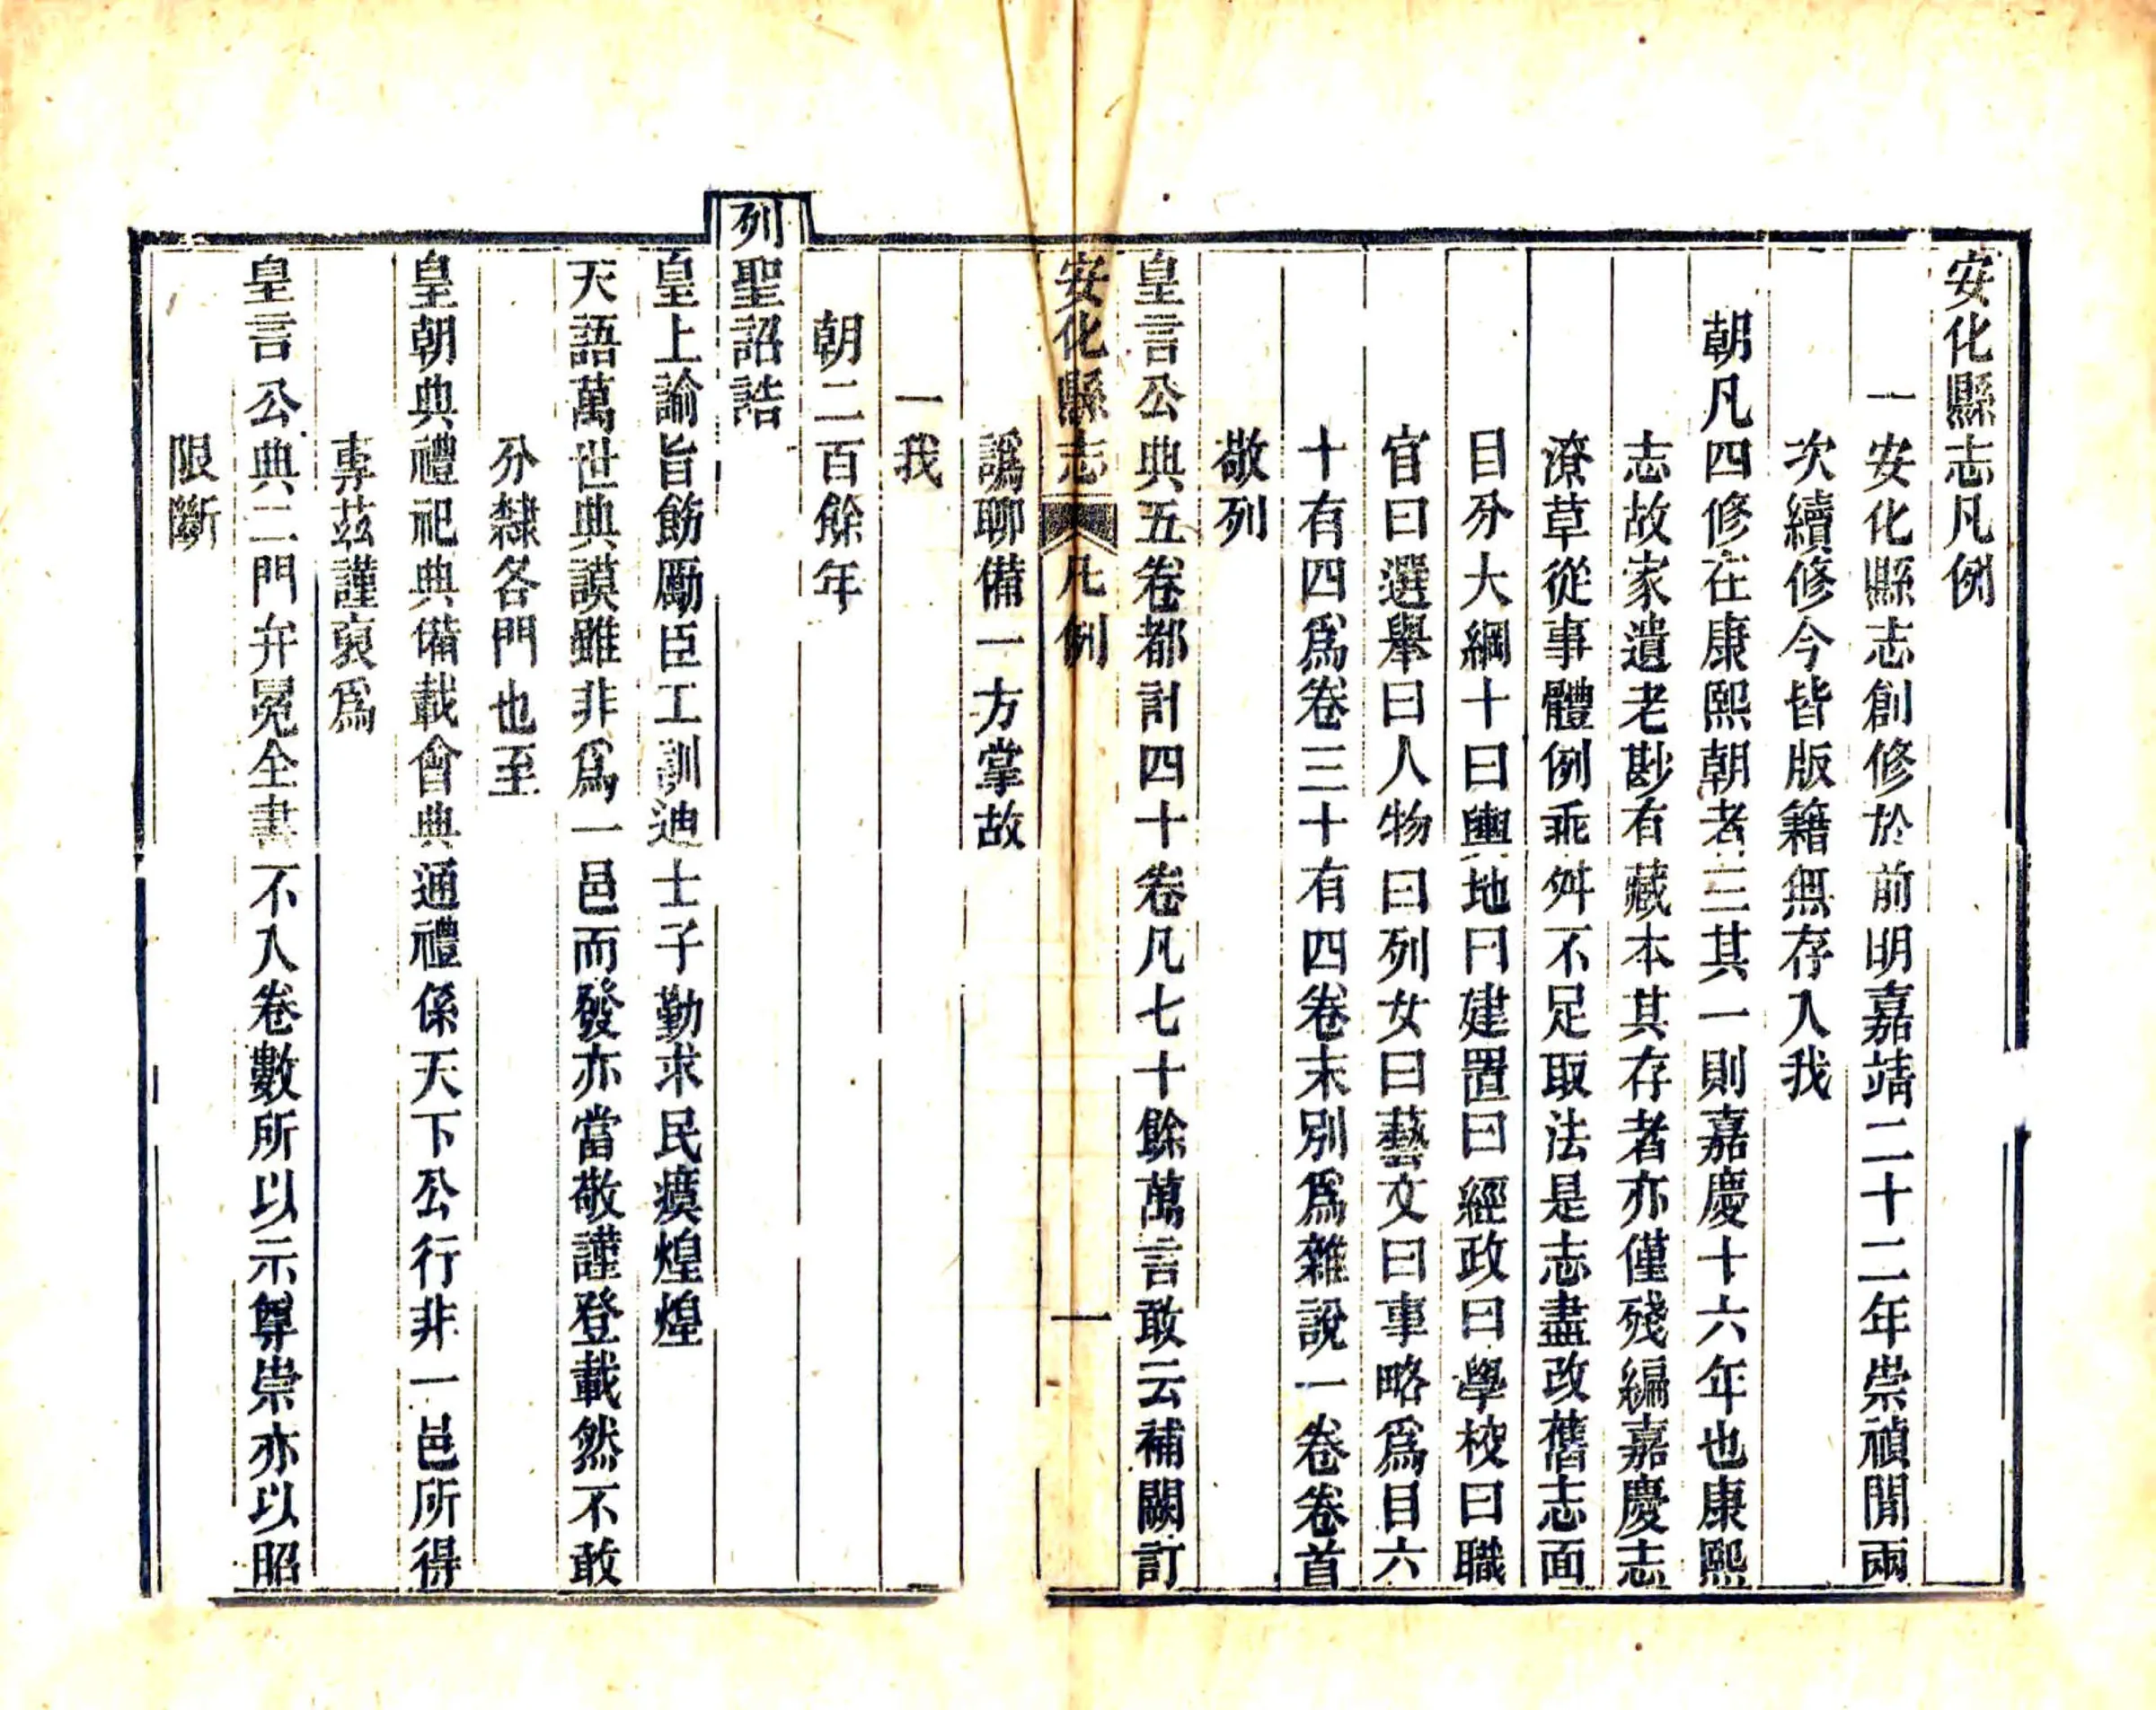 安化縣志凡例
一安化縣志創修於前明嘉靖二十二年崇禎閒兩
次續修今皆版籍無存入我
朝凡四修在康熙朝者三其一則嘉慶十六年也康熙
志故家遺老尠有藏本其存者亦僅殘編嘉慶志
潦草從事體例乖舛不足取法是志盡改舊志面
目分大綱十曰輿地曰建置曰經政曰學校曰職
官曰選舉曰人物曰列女曰藝文曰事略爲目六
十有四爲卷三十有四卷末別爲雜說一卷卷首
敬列
皇言公典五卷都計四十卷凡七十餘萬言敢云補闕訂
安化縣志 凡例 一
譌聊備一方掌故
一我
朝二百餘年
列聖詔誥
皇上諭旨飭勵臣工訓迪士子勤求民瘼煌煌
天語萬世典謨雖非爲一邑而發亦當敬謹登載然不敢
分隸各門也至
皇朝典禮祀典備載會典通禮係天下公行非一邑所得
專茲謹裒爲
皇言公典二門弁冕全書不入卷數所以示尊崇亦以昭
限斷